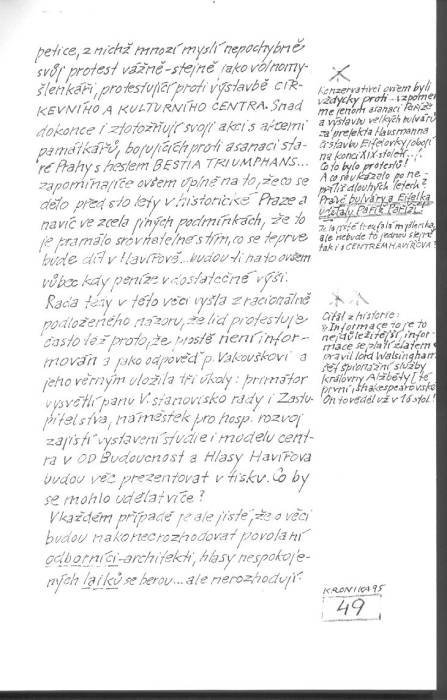 petice, z nichž mnozí myslí nepochybně
svůj protest vážně-stejně jako volnomy-
šlenkáři, protestující proti výstavbě CÍR-
KEVNÍHO A KULTURNÍHO CENTRA. Snad
dokonce i ztotožňují svoji akci s akcemi
památkářů, bojujících proti asanaci sta-
ré Prahy s heslem BESTIA TRIUMPHANS...
zapomínajíce ovšem úplně na to, že co se
dělo před sto lety v historické Praze a
navíc ve zcela jiných podmínkách, že to
je pramálo srovnatelné s tím, co se teprve
bude dít v Havířově... budou-li na to ovšem
vůbec kdy peníze v dostatečné výši.
Rada tedy v této věci vyšla z racionálně
podloženého názoru, že lid protestuje
často též proto, že prostě není infor-
mován a jako odpověď p. Vakouškovi a
jeho věrným uložila tři úkoly: primátor
vysvětlí panu V. stanovisko rady i Zastu-
pitelstva, náměstek pro hosp. rozvoj
zajistí vystavení studie i modelu cent-
ra v OD Budoucnost a Hlasy Havířova
budou věc prezentovat v tisku. Co by
se mohlo udělat více?
V každém případě je ale jisté, že o věci
budou nakonec rozhodovat povolaní
odborníci-architekti, hlasy nespokoje-
ných laiků se berou... ale nerozhodují.
Konzervativci ovšem byli
vždycky proti - vzpomeň
me jenom asanaci Paříže
a výstavbu velkých bulvárů
za prefekta Hausmanna
či stavbu Eifelovky (obojí
na konci XIX. století...).
Co to bylo protestů!
A co se ukázalo po ne-
příliš dlouhých letech?
Právě bulváry a Eifelka
udělaly Paříž Paříží.
ale nebude to jednou stejné
tak i s CENTREM HAVÍŘOVA?
Citát z historie:
"Informace to je to
nejdůležitější, infor-
mace se platí zlatem"
pravil lord Walsingham
šéf špionážní služby
královny Alžběty (té
první, shakespearovské)
On to věděl už v 16. stol.!
KRONIKA 95
49